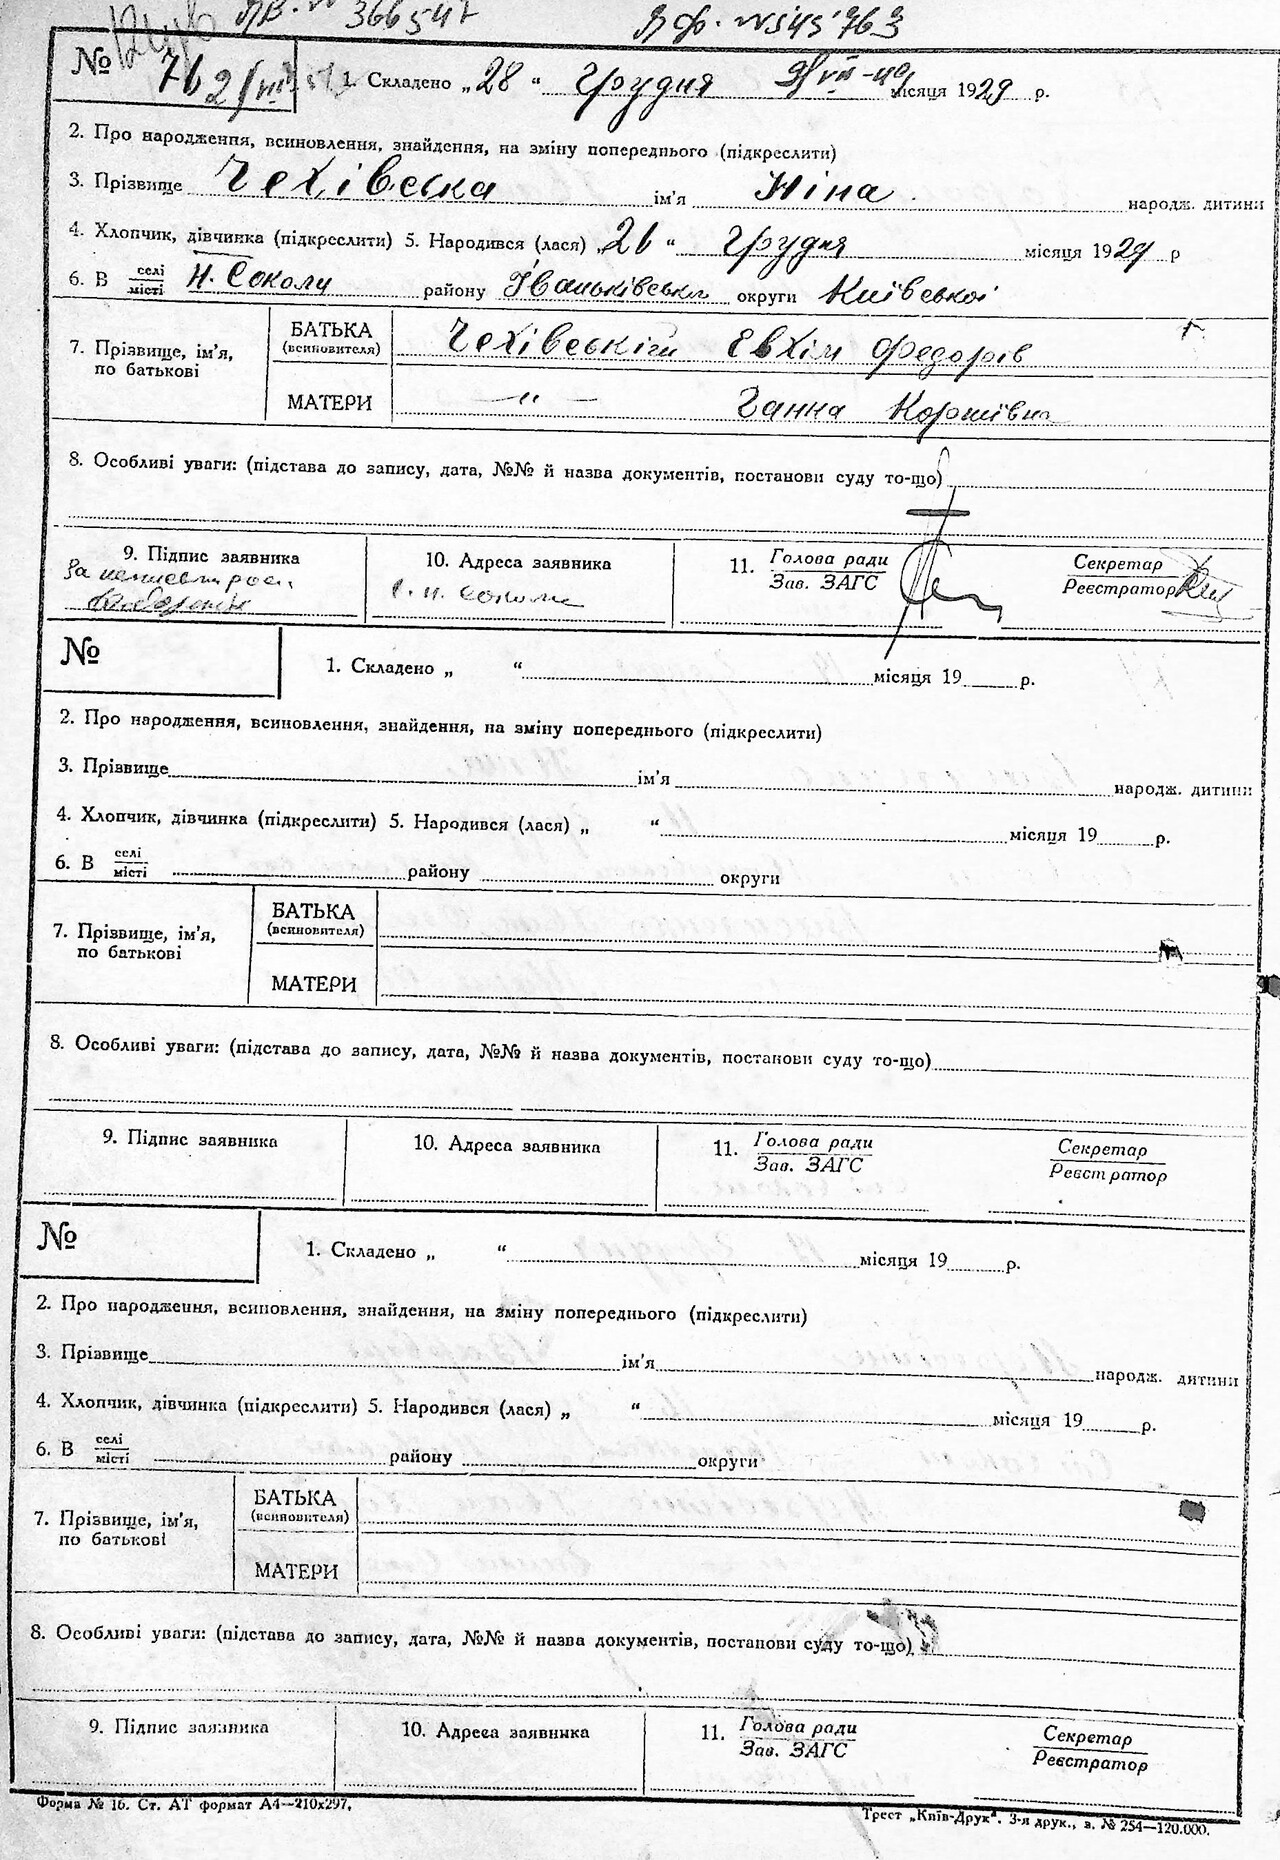 № 366547
№ 545763
№
76
1. Складено „28“ Грудня місяця 1929 р.
2. Про народження, всиновлення, знайдення, на зміну попереднього (підкреслити)
3. Прізвище Чехівська ім'я Ніна народж. дитини
4. Хлопчик, дівчинка (підкреслити) 5. Народився (лася) „26“ Грудня місяця 1929 р
6. В селі/місті Н. Соколи району Іваньківськ округи Київської
7. Прізвище, ім'я, по батькові
БАТЬКА (всиновителя) Чехівський Евхім Федорів
МАТЕРИ —„— Ганна Корніївна
8. Особливі уваги: (підстава до запису, дата, №№ й назва документів, постанови суду то-що)
9. Підпис заявника
За неписьм
10. Адреса заявника
с. Н. Соколи
11. Голова ради
Зав. ЗАГС
Секретар
Реєстратор
№
1. Складено „ “ місяця 19 р.
2. Про народження, всиновлення, знайдення, на зміну попереднього (підкреслити)
3. Прізвище ім'я народж. дитини
4. Хлопчик, дівчинка (підкреслити) 5. Народився (лася) „ “ місяця 19 р.
6. В селі/місті району округи
7. Прізвище, ім'я, по батькові
БАТЬКА (всиновителя)
МАТЕРИ
8. Особливі уваги: (підстава до запису, дата, №№ й назва документів, постанови суду то-що)
9. Підпис заявника
10. Адреса заявника
11. Голова ради
Зав. ЗАГС
Секретар
Реєстратор
№
1. Складено „ “ місяця 19 р.
2. Про народження, всиновлення, знайдення, на зміну попереднього (підкреслити)
3. Прізвище ім'я народж. дитини
4. Хлопчик, дівчинка (підкреслити) 5. Народився (лася) „ “ місяця 19 р.
6. В селі/місті району округи
7. Прізвище, ім'я, по батькові
БАТЬКА (всиновителя)
МАТЕРИ
8. Особливі уваги: (підстава до запису, дата, №№ й назва документів, постанови суду то-що)
9. Підпис заявника
10. Адреса заявника
11. Голова ради
Зав. ЗАГС
Секретар
Реєстратор
Форма № 16. Ст. АТ формат А4—210х297.
Трест „Київ-Друк“. 3-я друк., з. № 254—120.000.